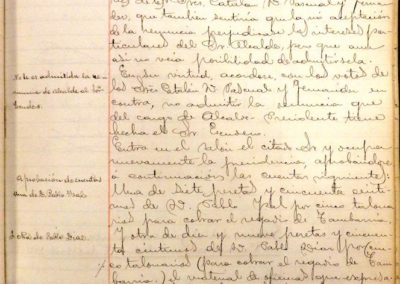 des de los Sres. Catalán, D. Pascual y Fernan-
dez, que tambien sentiria que la no aceptacion
de la renuncia perjudicara los intereses par-
ticulares del Sr. Alcalde, pero que aun
asi no veia posibilidad de admitirsela.
En su virtud, acordose, con los votos de
los Sres. Catalán D. Pascual y Fernandez en
contra, no admitir la renuncia que
del cargo de Alcalde-Presidente tiene
hecha el Sr.
Entra en el salon el citado Sr. y ocupa
nuevamente la presidencia, aprobandose
á continuacion las cuentas siguientes:
Una de siete pesetas y cincuenta centi-
mos de D. Pablo por cinco talona-
rios para cobrar el regadio de Cambarria.
Y otra de diez y nueve pesetas y cincuen-
ta centimos de D. Pablo Diaz por cin-
co talonarios (para cobrar el regadio de Cam-
barria) y el material de oficinas que expresa
No le es admitida la re-
nuncia de alcalde al Sr.
Aprobacion de cuentas
una de D. Pablo
Otra de Pablo Diaz.